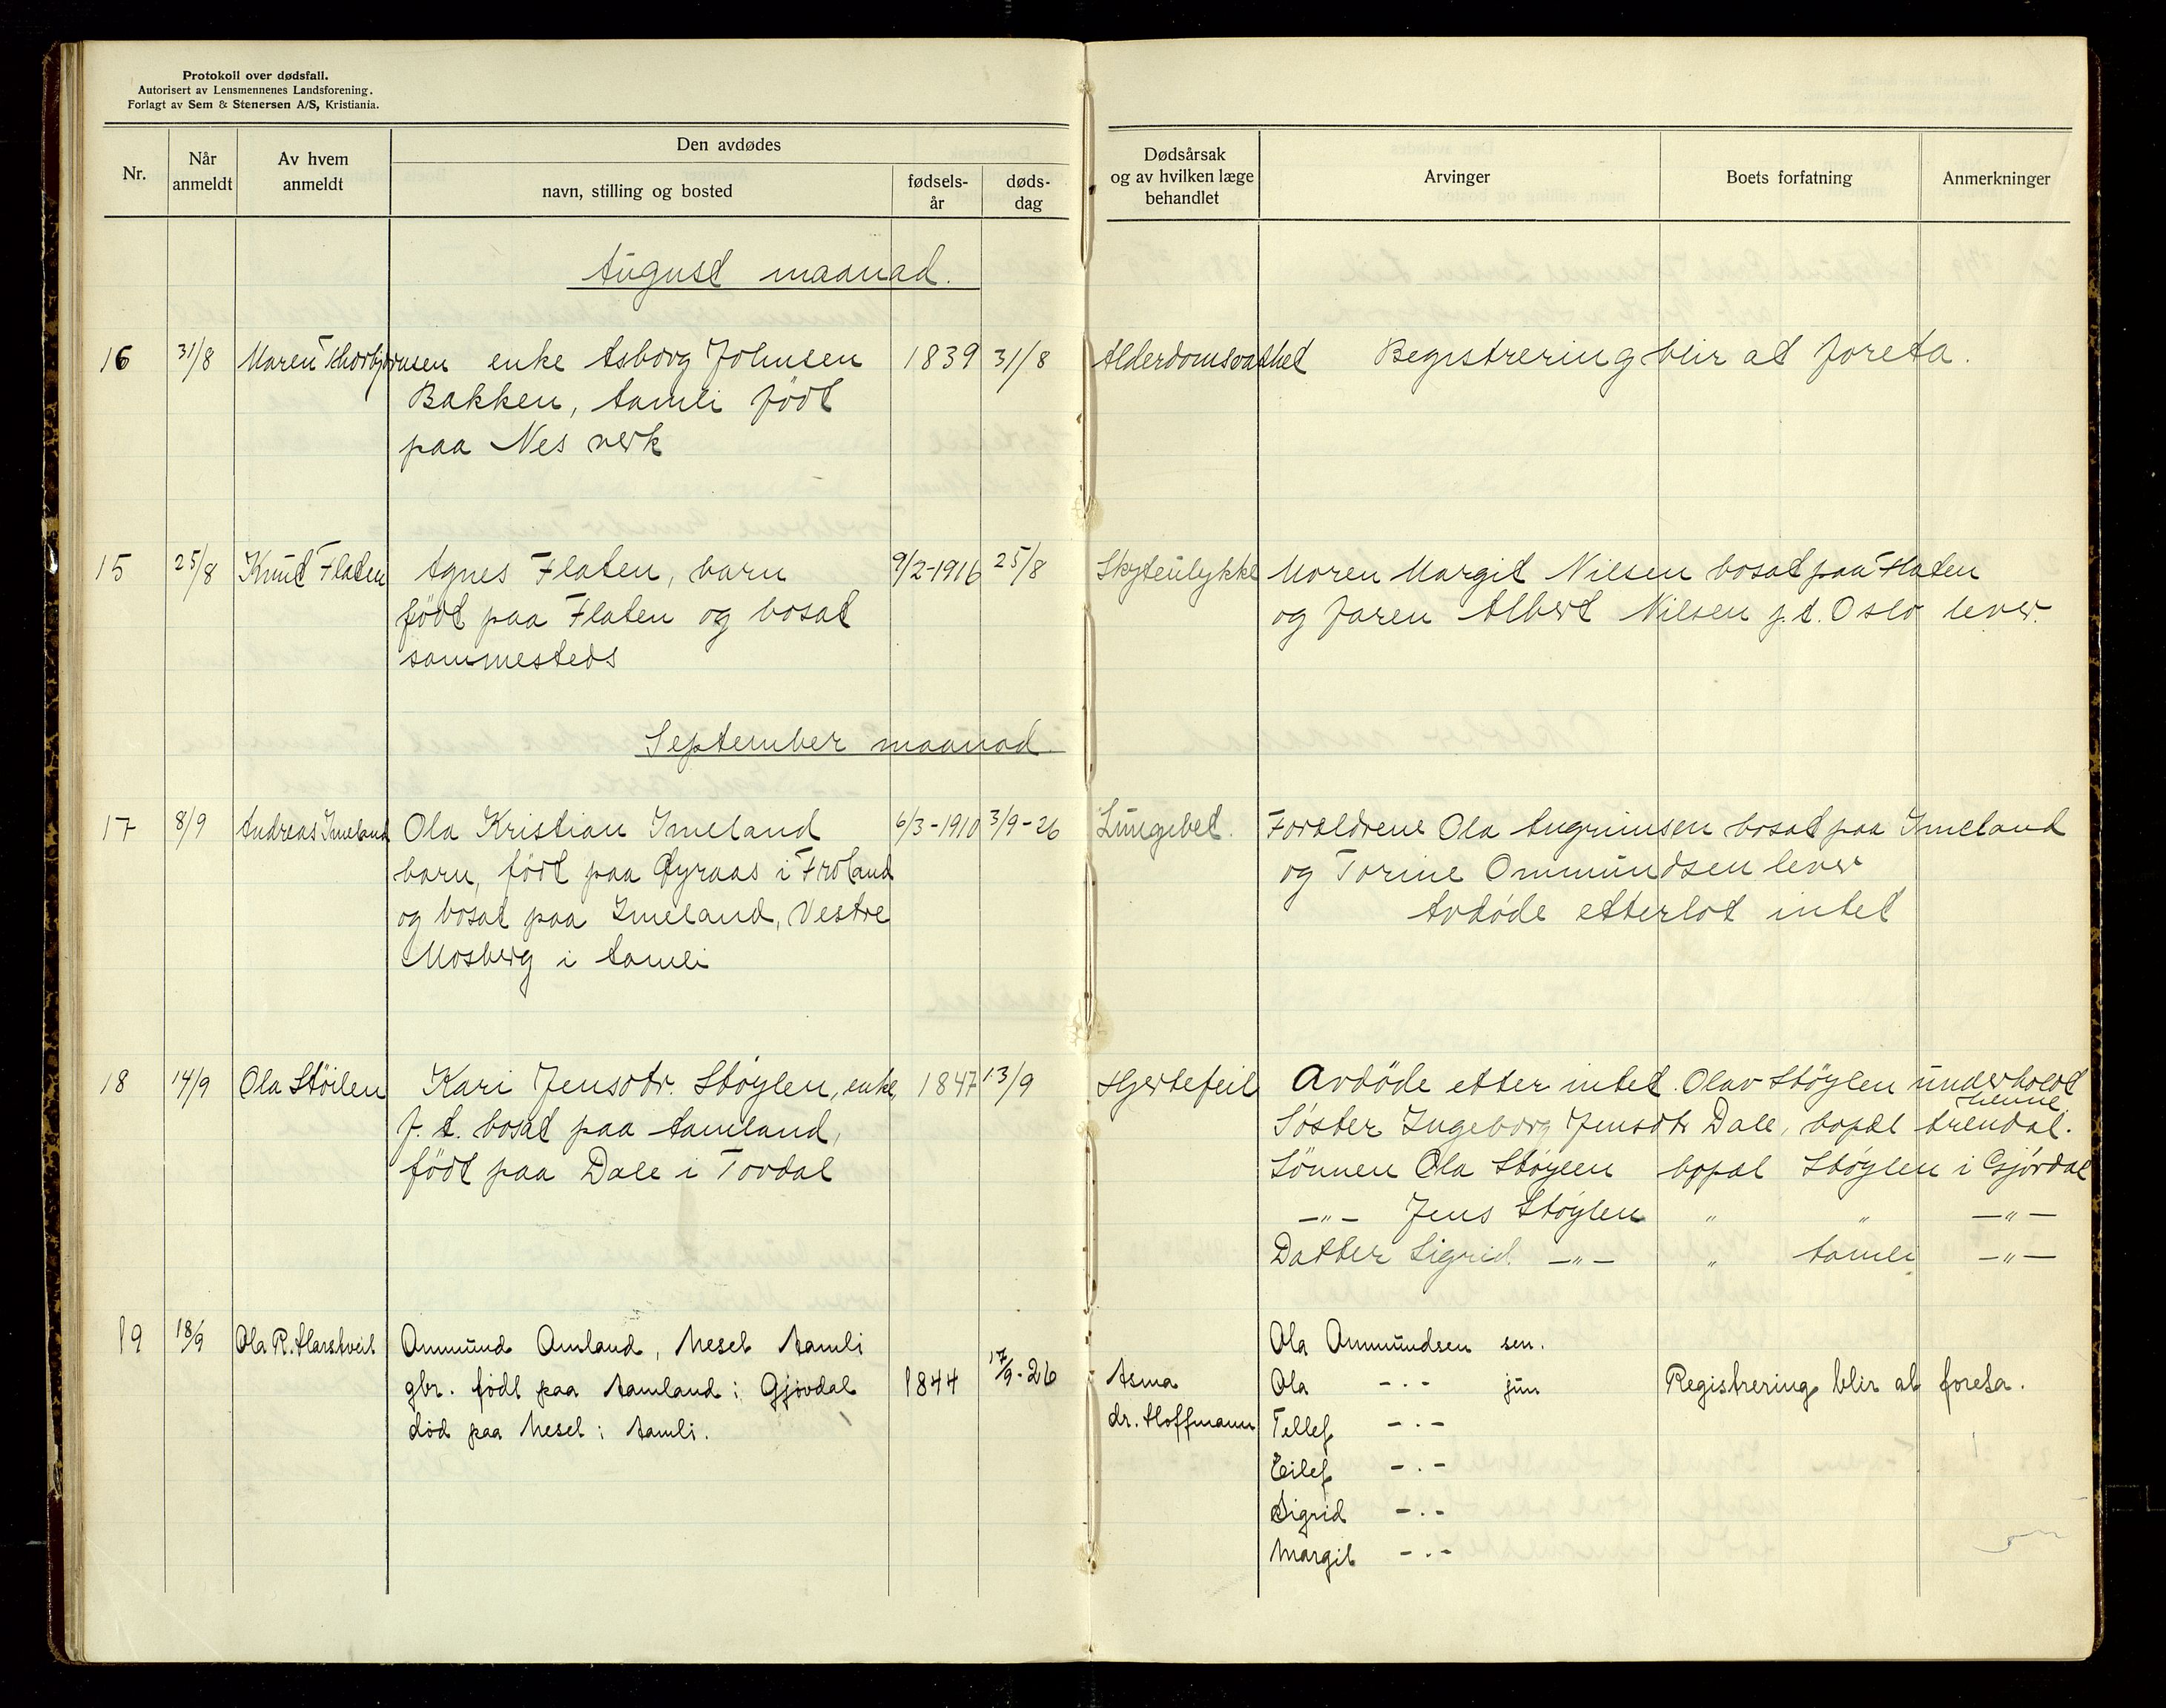 Protokoll over dødsfall.
Autorisert av Lensmennenes Landsforening.
Forlagt av Sem & Stenersen A/S, Kristiania.
Nr.
Når anmeldt
Av hvem anmeldt
Den avdødes
navn, stilling og bosted
fødsels-år
døds-dag
Dødsårsak og av hvilken læge behandlet
Arvinger
Boets forfatning
Anmerkninger
August maanad.
16 31/8 Maren Thorbjørnsen enke Asborg Johnsen 1839 31/8 Alderdomsvakhet Registrering blir at foreta.
Bakken, Aamli født
paa Nes verk
15 25/8 Knut Flaten Agnes Flaten, barn 9/2-1916 25/8 Skyteulykke Moren Margit Nilsen bosat paa Flaten
født paa Flaten og bosat og faren Albert Nilsen f.t. Oslo lever.
sammesteds
September maanad.
17 8/9 Andreas Imeland Ola Kristian Imeland 6/3-1910 3/9-26 Lungebet. Foreldrene Ola Angrimsen bosat paa Imeland
barn, født paa Øyraas i Froland og Torine Ommundsen lever
og bosat paa Imeland, Vestre Avdøde etterlot intet
Mosberg i Aamli
18 14/9 Ola Stöilen Kari Jensdtr. Støylen, enke, 1847 13/9 Hjertefeil Avdöde etter intet. Olav Støylen underholdt
henne
f. t. bosat paa Aamland, Söster Ingeborg Jensdtr Dale, bopæl Arendal.
født paa Dale i Tovdal Sönnen Ola Støylen bopæl Støylen i Gjövdal
—"— Jens Støylen " " —"—
Datter Sigrid —"— " Aamli —"—
19 18/9 Ola R. Harstveit Ommund Omland, Nesel Aamli Ola Ommundsen sen.
gbr. født paa Aamland i Gjøvdal 1844 17/9-26 Asma Ola -.- jun Registrering blir at foreta.
død paa Nesel i Aamli. dr. Hoffmann Tellef -.-
Eilef -.-
Sigrid -.-
Margit -.-